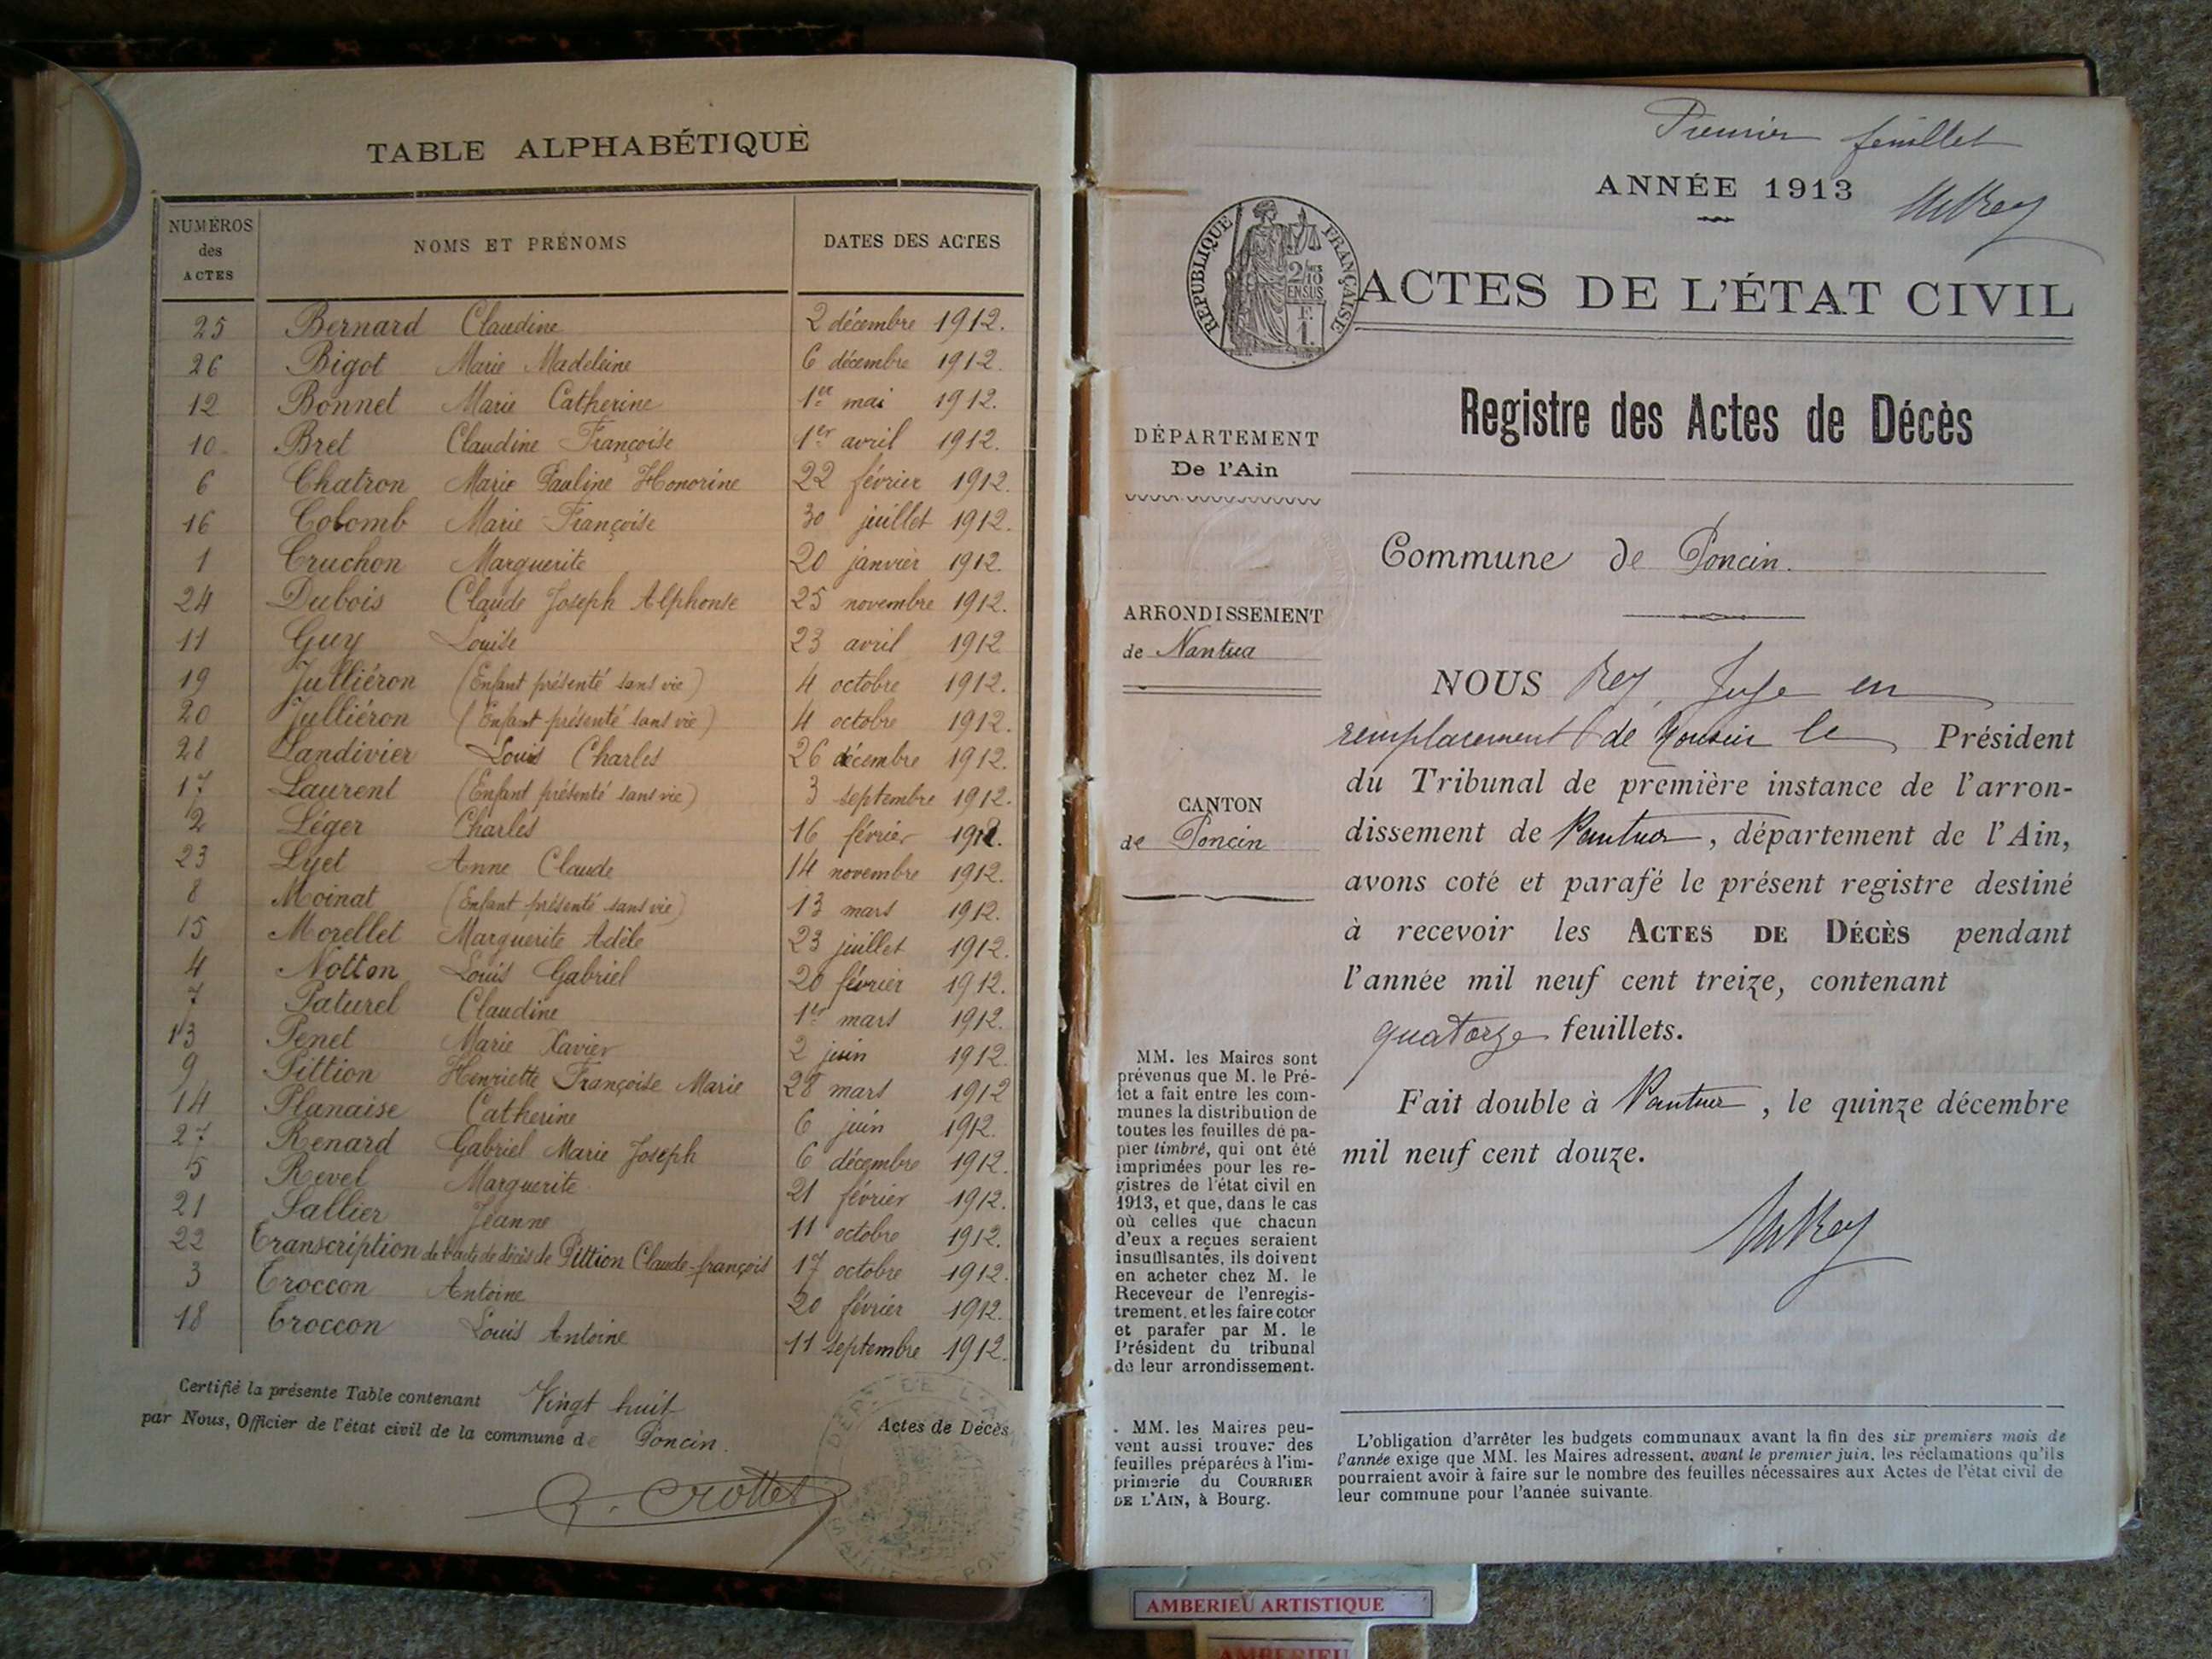 TABLE ALPHABÉTIQUE
NUMÉROS des ACTES NOMS ET PRÉNOMS DATES DES ACTES
25 Bernard Claudine 2 décembre 1912.
26 Bigot Marie Madeleine 6 décembre 1912.
12 Bonnet Marie Catherine 1er mai 1912.
10 Bret Claudine Françoise 1er avril 1912.
6 Chatron Marie Pauline Honorine 22 février 1912.
16 Colomb Marie Françoise 30 juillet 1912.
1 Cruchon Marguerite 20 janvier 1912.
24 Dubois Claude Joseph Alphonse 25 novembre 1912.
11 Guy Louise 23 avril 1912
19 Julliéron (Enfant présenté sans vie) 4 octobre 1912.
20 Julliéron (Enfant présenté sans vie) 4 octobre 1912.
28 Landivier Louis Charles 26 décembre 1912.
17 Laurent (Enfant présenté sans vie) 3 septembre 1912.
2 Léger Charles 16 février 1912.
23 Lyet Anne Claude 14 novembre 1912.
8 Moinat (Enfant présenté sans vie) 13 mars 1912.
15 Morellet Marguerite Adèle 23 juillet 1912.
4 Notton Louis Gabriel 20 février 1912.
7 Paturel Claudine 1er mars 1912.
13 Penet Marie Xavier 2 juin 1912
9 Pittion Henriette Françoise Marie 28 mars 1912
14 Planaise Catherine 6 juin 1912.
27 Renard Gabriel Marie Joseph 6 décembre 1912.
5 Revel Marguerite 21 février 1912.
21 Sallier Jeanne 11 octobre 1912.
22 Transcription de l'acte de décès de Pittion Claude-françois 17 octobre 1912.
3 Troccon Antoine 20 février 1912.
18 Troccon Louis Antoine 11 septembre 1912.
Certifié la présente Table contenant Vingt huit Actes de Décès
par Nous, Officier de l'état civil de la commune de Poncin.
Crottet
Premier feuillet
ANNÉE 1913
RÉPUBLIQUE FRANÇAISE
2/10 EN SUS
F. 1.
ACTES DE L'ÉTAT CIVIL
Registre des Actes de Décès
DÉPARTEMENT
De l'Ain
Commune de Poncin.
ARRONDISSEMENT
de Nantua
CANTON
de Poncin
NOUS Rey, Juge en
remplacement de Monsieur le Président
du Tribunal de première instance de l'arron-
dissement de Nantua, département de l'Ain,
avons coté et parafé le présent registre destiné
à recevoir les ACTES DE DÉCÈS pendant
l'année mil neuf cent treize, contenant
quatorze feuillets.
Fait double à Nantua, le quinze décembre
mil neuf cent douze.
MM. les Maires sont
prévenus que M. le Pré-
fet a fait entre les com-
munes la distribution de
toutes les feuilles de pa-
pier timbré, qui ont été
imprimées pour les re-
gistres de l'état civil en
1913, et que, dans le cas
où celles que chacun
d'eux a reçues seraient
insuffisantes, ils doivent
en acheter chez M. le
Receveur de l'enregis-
trement, et les faire coter
et parafer par M. le
Président du tribunal
de leur arrondissement.
MM. les Maires peu-
vent aussi trouver des
feuilles préparées à l'im-
primerie du COURRIER
DE L'AIN, à Bourg.
L'obligation d'arrêter les budgets communaux avant la fin des six premiers mois de
l'année exige que MM. les Maires adressent, avant le premier juin, les réclamations qu'ils
pourraient avoir à faire sur le nombre des feuilles nécessaires aux Actes de l'état civil de
leur commune pour l'année suivante.
AMBERIEU ARTISTIQUE
AMBERIEU